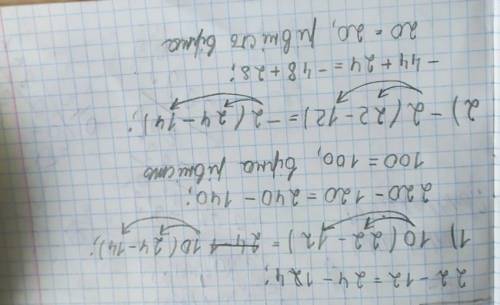 22 - 12 = 24 - 14;
1) 10(22 - 12) = 10(24 - 14);
220 - 120 = 240 - 140;
100 = 100, вірна рівність
2) -2(22 - 12) = -2(24 - 14);
-44 + 24 = -48 + 28;
20 = 20, рівність вірна